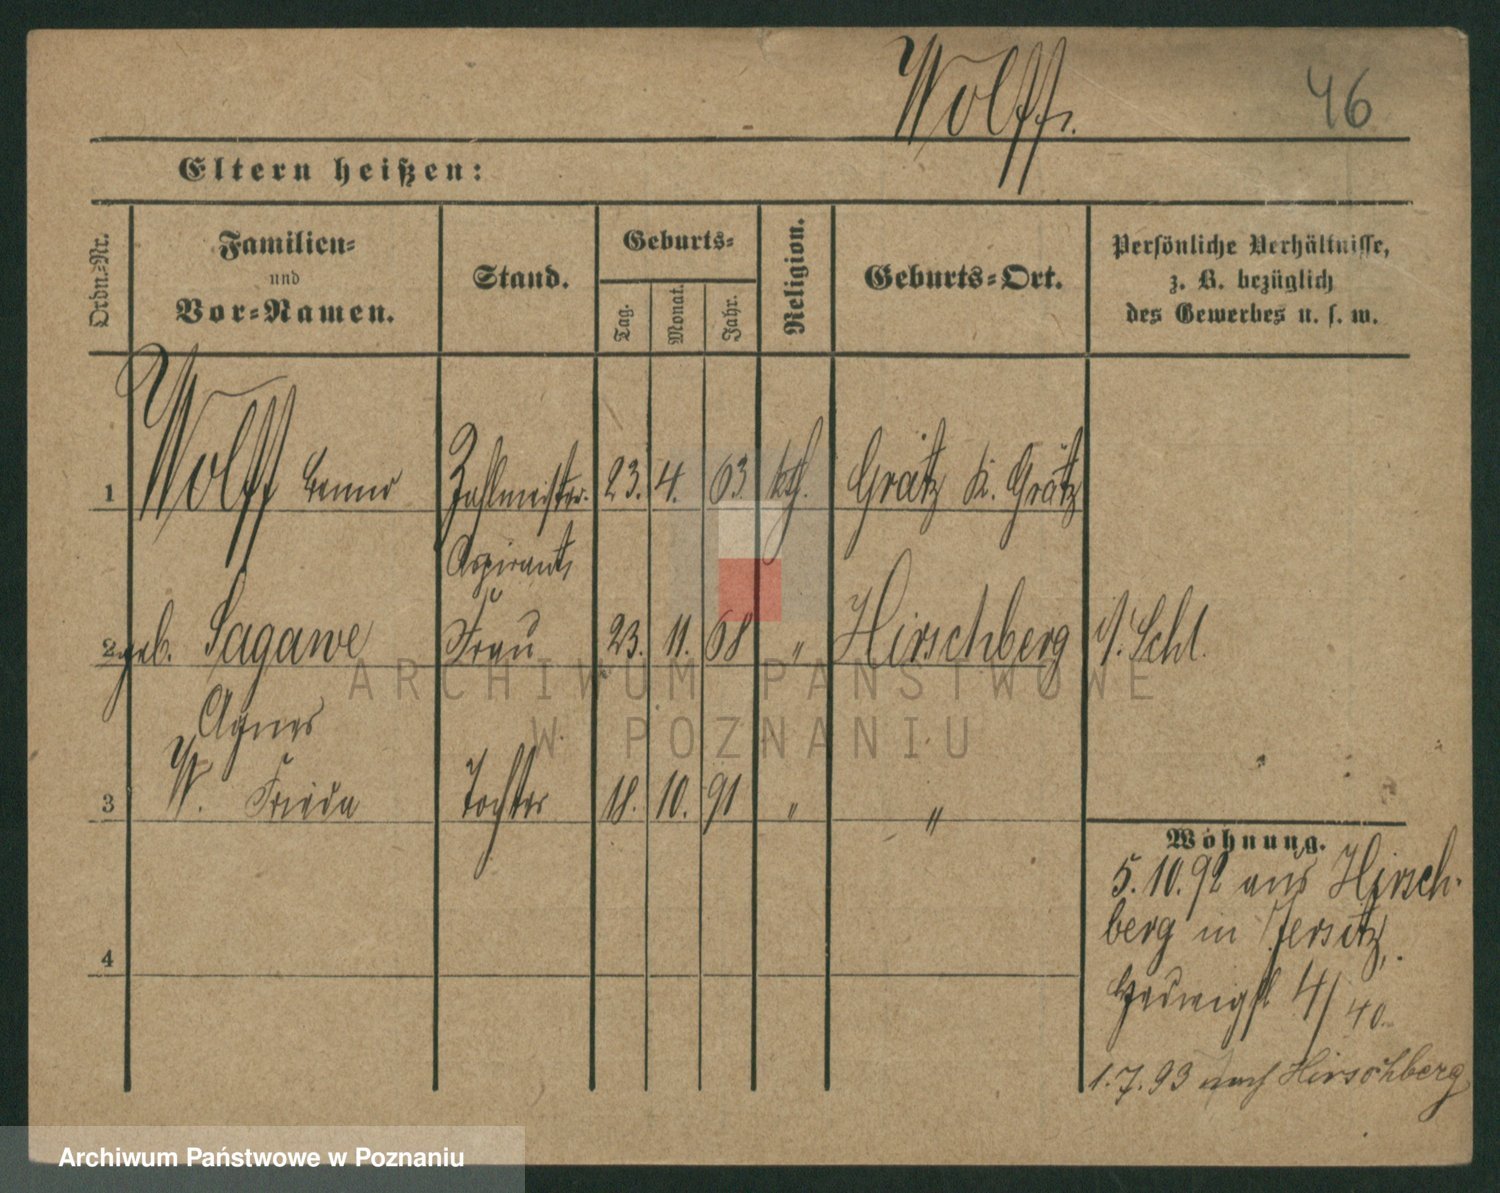 Wolff.
46
Eltern heißen:
Ordn.=Nr.
Familien=
und
Vor=Namen.
Stand.
Geburts=
Tag.
Monat.
Jahr.
Religion.
Geburts=Ort.
Persönliche Verhältnisse,
z. B. bezüglich
des Gewerbes u. s. w.
1 Wolff Benno Zahlmeister- 23. 4. 63. kth. Grätz K. Grätz
Aspirant
2 geb. Sagawe Frau 23. 11. 68 " Hirschberg i/ Schl.
Agnes
3 W. Frieda Tochter 18. 10. 91 " "
4
Wohnung.
5.10.92 aus Hirsch-
berg in Jersitz,
Hedwigst 4/
40.
1.7.93 nach Hirschberg
ARCHIWUM PAŃSTWOWE
W POZNANIU
Archiwum Państwowe w Poznaniu